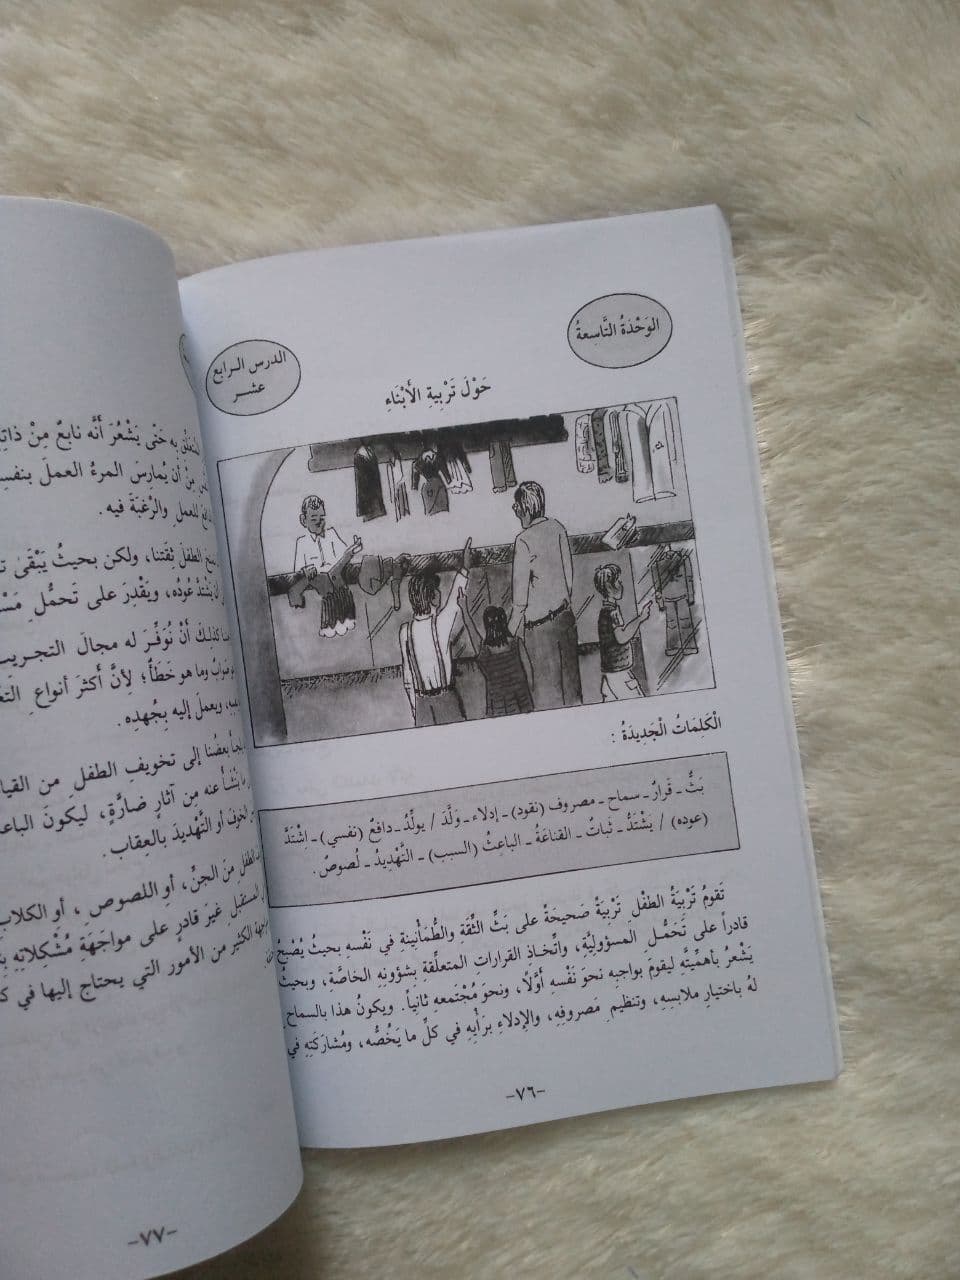 الوَحْدَةُ التَّاسِعةُ
الدرس الـرابع
عشــر
حَوْلَ تَرْبِيةِ الأَبْنَاءِ
الْكَلِمَاتُ الْجَدِيدَةُ :
بَثٌّ ـ قَرارٌ ـ سماح ـ مصروف (نقود) ـ إدلاء ـ وَلَّدَ / يولِّدُ ـ دافعٌ (نفسي) ـ اِشْتَدَّ
(عوده) / يَشْتَدُّ ـ ثباتٌ ـ القناعَةُ ـ الباعِثُ (السبب) ـ التَّهْدِيدُ ـ لُصوصٌ .
تَقومُ تَرْبِيَةُ الطفْلِ تَرْبِيَةً صَحيحَةً على بَثِّ الثِّقَةِ والطُّمَأْنِينة في نَفْسِهِ بحيثُ يُصْبِحُ
قادراً على تَحَمُّلِ المسؤوليَّةِ، واتِّخاذِ القراراتِ المتعلِّقةِ بشؤونِهِ الخاصَّة، وبحيثُ
يَشْعُر بأهمِّيَّتِهِ ليقومَ بواجبِهِ نحوَ نَفْسِهِ أوَّلاً، ونحوَ مُجْتَمعِهِ ثانِياً. ويكونُ هذا بالسماحِ
لهُ باختيارِ ملابسِهِ، وتنظيمِ مَصروفِهِ، والإدلاءِ برَأْيِهِ في كلِّ ما يَخُصُّه، ومُشارَكَتِهِ في
-٧٦-
به حَتَّى يَشْعُرَ أَنَّه نابعٌ مِنْ
مِنْ أن يُمارِسَ المرءُ العملَ
للعملِ والرَّغْبَةَ فيه .
الطفلَ ثقَتنا، ولكن بحيثُ يَبْقَى
عُودُه، ويَقْدِرَ على تَحمُّلِ
كذلِكَ أَنْ نُوَفِّرَ له مجالَ
وما هو خَطَأٌ؛ لِأَنَّ أَكثرَ أنواعِ
ويعملَ إليه بِجُهدِه .
بعضُنا إلى تخويفِ الطفلِ مِن
عنه مِن آثارٍ ضارَّةٍ، ليكونَ
الخوف أو التَّهْديدَ بالعِقاب .
الطفل مِنَ الجنِّ، أو اللصوصِ، أو
المستقبل غيرَ قادرٍ على مواجَهَةِ مُشْكِلاتِهِ
الكثيرَ من الأمور التي يحتاج إليها في
-٧٧-